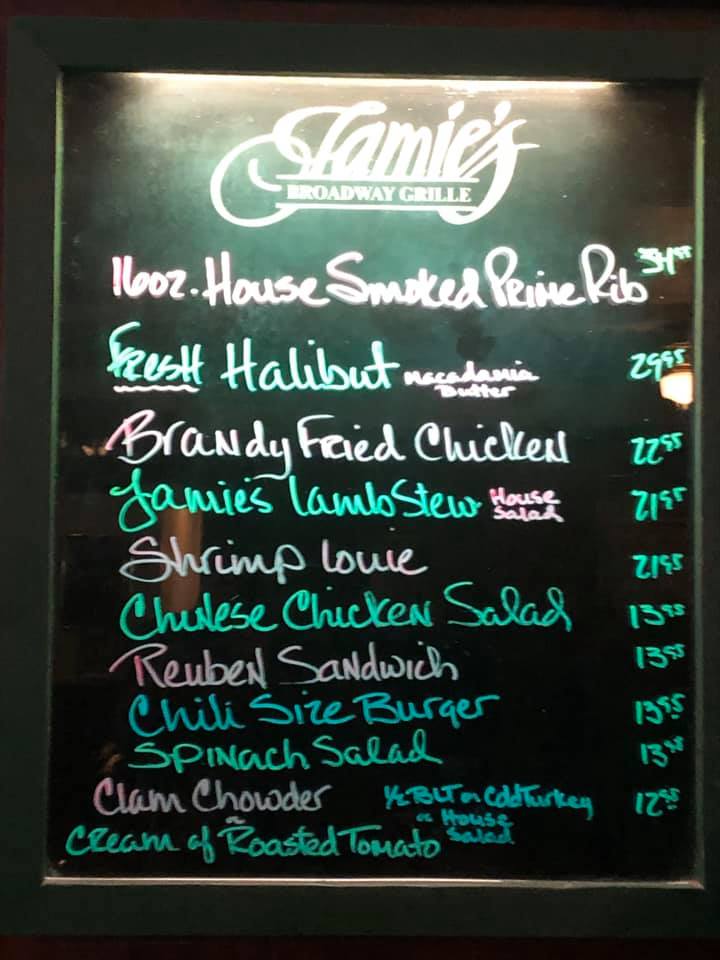 Jamie's
BROADWAY GRILLE
16oz. House Smoked Prime Rib 34.95
Fresh Halibut Macadamia Butter 29.95
Brandy Fried Chicken 22.95
Jamie's Lamb Stew House Salad 21.95
Shrimp Louie 21.95
Chinese Chicken Salad 13.95
Reuben Sandwich 13.95
Chili Size Burger 13.95
Spinach Salad 13.95
Clam Chowder ½ BLT or Cold Turkey 12.95
or or House
Cream of Roasted Tomato Salad